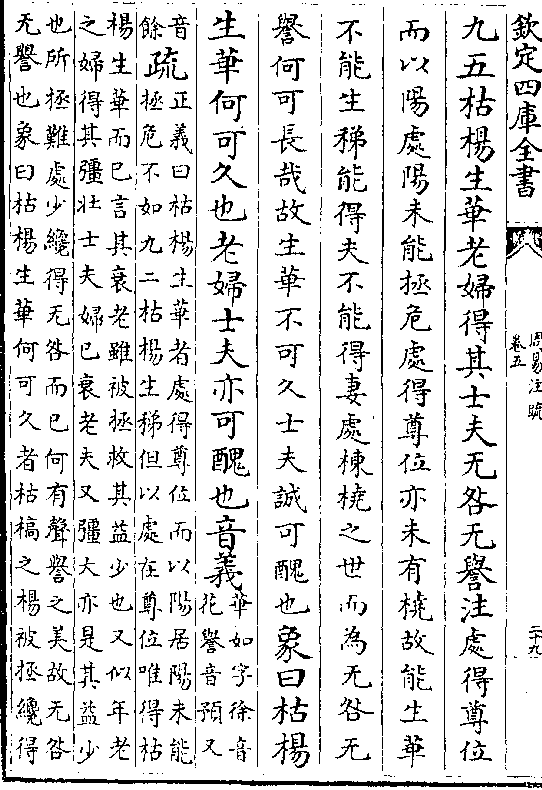 欽定四庫全書
周易注疏
卷五
二十九
九五枯楊生華老婦得其士夫无咎无譽注處得尊位
而以陽處陽未能拯危處得尊位亦未有橈故能生華
不能生稊能得夫不能得妻處棟橈之世而為无咎无
譽何可長哉故生華不可久士夫誠可醜也象曰枯楊
生華何可久也老婦士夫亦可醜也音義
華如字徐音
花譽音預又
音
餘
疏
正義曰枯楊生華者處得尊位而以陽居陽未能
拯危不如九二枯楊生稊但以處在尊位唯得枯
楊生華而已言其衰老雖被拯救其益少也又似年老
之婦得其彊壯士夫婦已衰老夫又彊大亦是其益少
也所拯難處少纔得无咎而已何有聲譽之美故无咎
无譽也象曰枯楊生華何可久者枯槁之楊被拯纔得